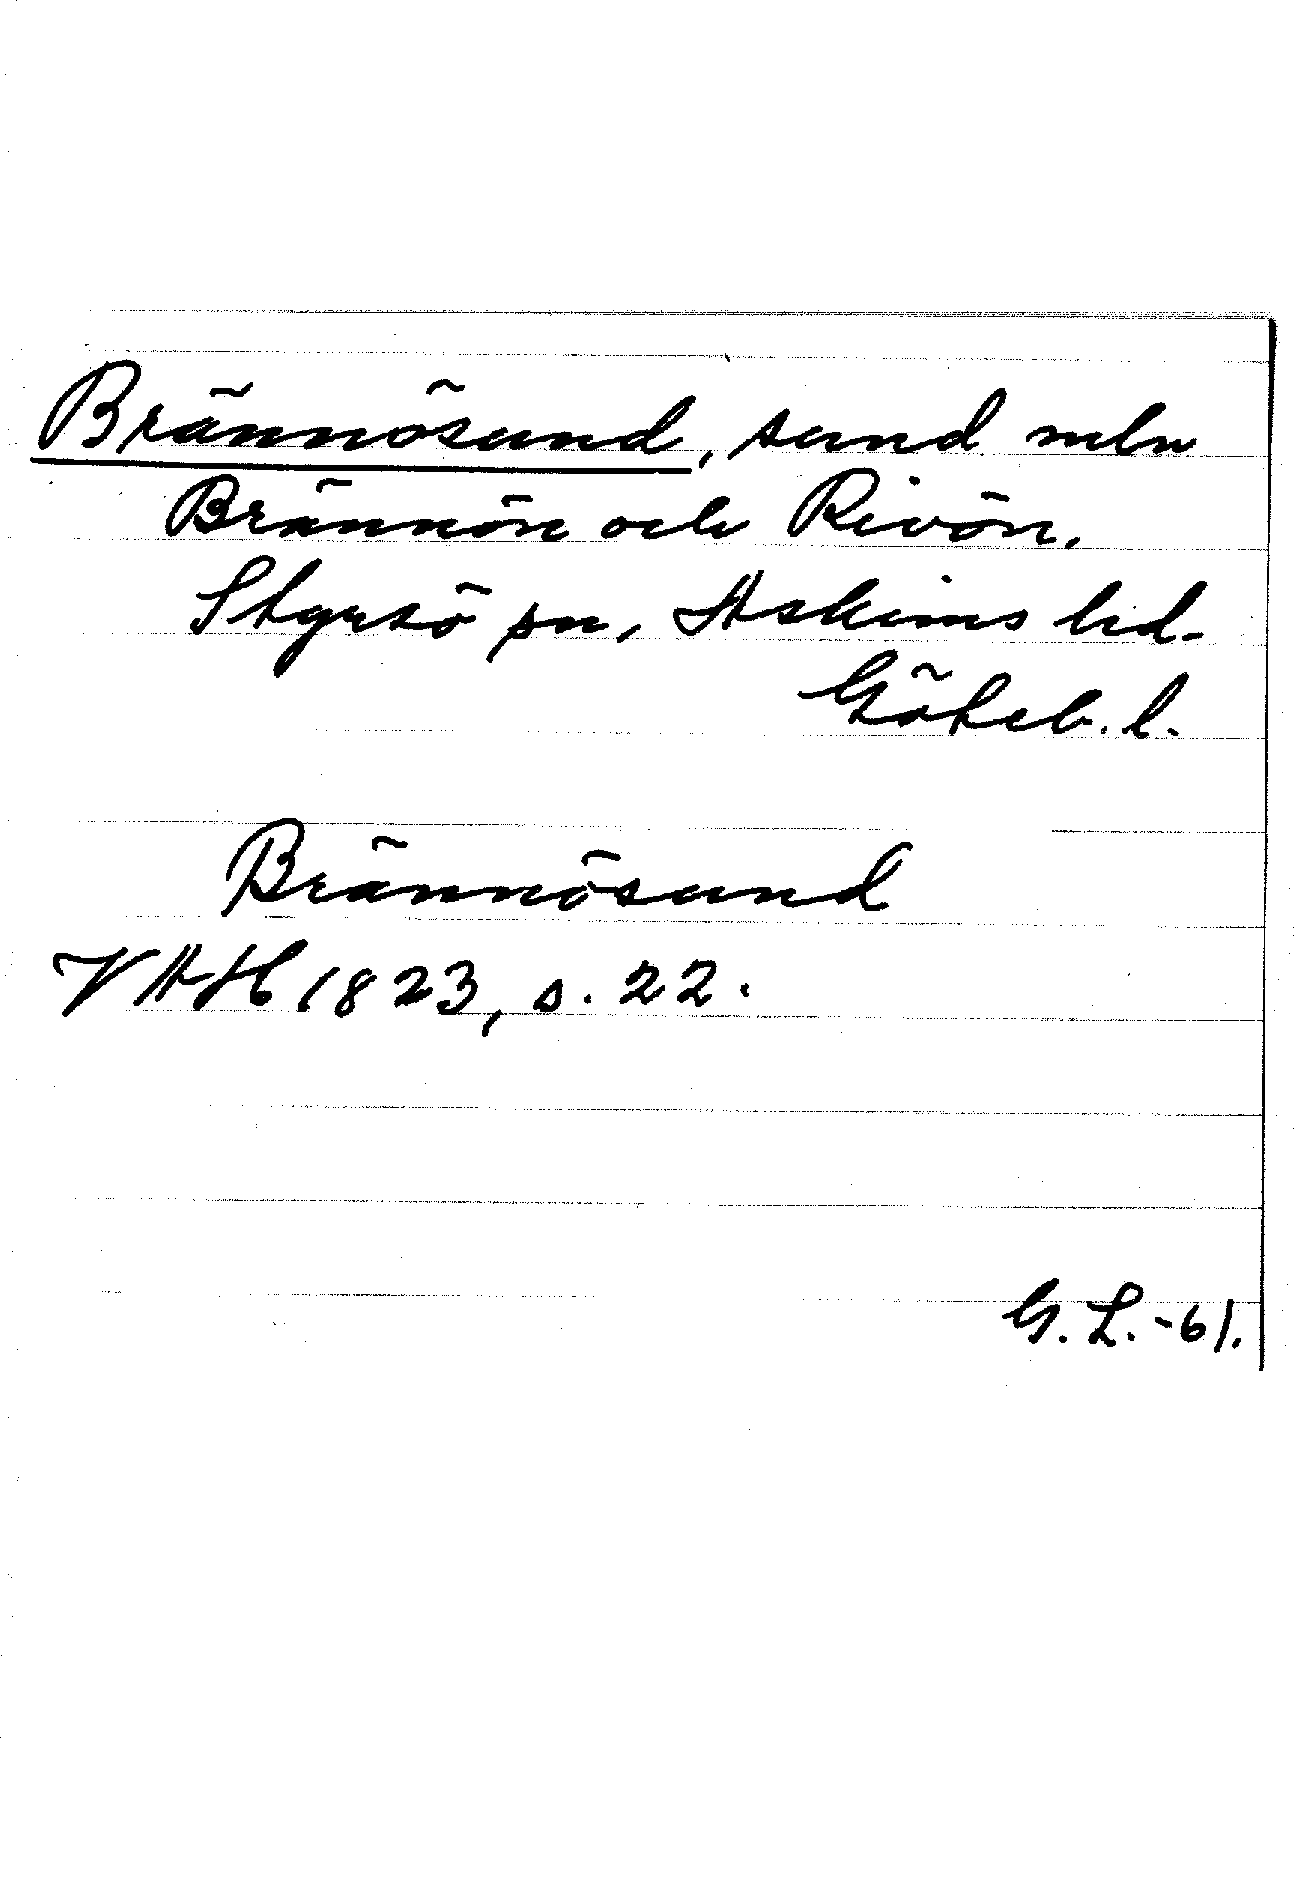 Brännösund, sund mln
Brännön och Rivön.
Styrsö sn, Askims hd.
Göteb. l.
Brännösund
VAH 1823, s. 22.
G. L. -61.